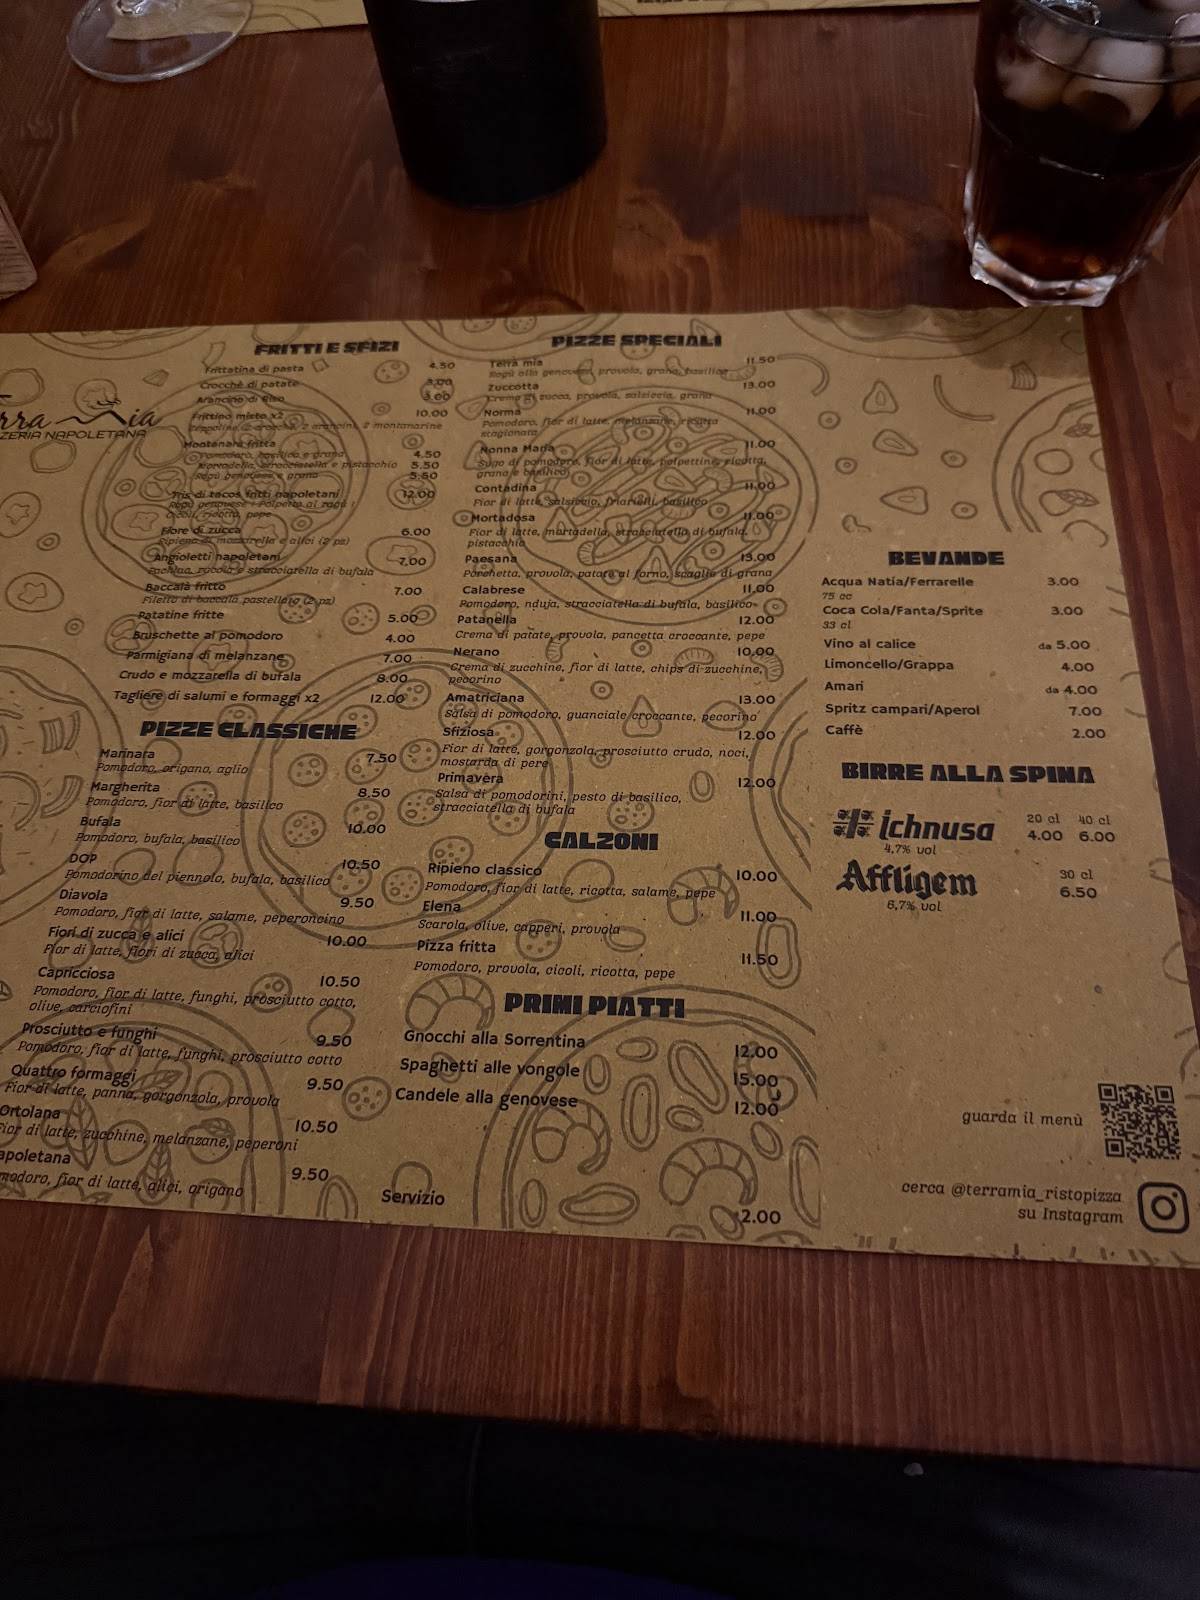 ZERIA NAPOLETANA
FRITTI E SFIZI
Frittatina di pasta 4.50
Crocchè di patate 3.00
Arancino di Riso 3.00
Frittino misto x2 10.00
Zeppoline, 2 crocchè, 2 arancini, 2 montanarine
Montanara fritta
Pomodoro, basilico e grana 4.50
Mortadella, stracciatella e pistacchio 5.50
Ragù genovese e grana 5.50
Tris di tacos fritti napoletani 12.00
Ragù genovese | Polpette al ragù |
Cicoli, ricotta, pepe
Fiore di zucca 6.00
Ripieno di mozzarella e alici (2 pz)
Angioletti napoletani 7.00
rucola e stracciatella di bufala
Baccalà fritto 7.00
Filetto di baccalà pastellato (2 pz)
Patatine fritte 5.00
Bruschette al pomodoro 4.00
Parmigiana di melanzane 7.00
Crudo e mozzarella di bufala 8.00
Tagliere di salumi e formaggi x2 12.00
PIZZE CLASSICHE
Marinara 7.50
Pomodoro, origano, aglio
Margherita 8.50
Pomodoro, fior di latte, basilico
Bufala 10.00
Pomodoro, bufala, basilico
DOP 10.50
Pomodorino del piennolo, bufala, basilico
Diavola 9.50
Pomodoro, fior di latte, salame, peperoncino
Fiori di zucca e alici 10.00
Fior di latte, fiori di zucca, alici
Capricciosa 10.50
Pomodoro, fior di latte, funghi, prosciutto cotto,
olive, carciofini
Prosciutto e funghi 9.50
Pomodoro, fior di latte, funghi, prosciutto cotto
Quattro formaggi 9.50
Fior di latte, panna, gorgonzola, provola
Ortolana 10.50
Fior di latte, zucchine, melanzane, peperoni
apoletana 9.50
modoro, fior di latte, alici, origano
PIZZE SPECIALI
Terra mia 11.50
Ragù alla genovese, provola, grana, basilico
Zuccotta 13.00
Crema di zucca, provola, salsiccia, grana
Norma 11.00
Pomodoro, fior di latte, melanzane, ricotta
stagionata
Nonna Maria 11.00
Sugo di pomodoro, fior di latte, polpettine, ricotta,
grana e basilico
Contadina 11.00
Fior di latte, salsiccia, friarielli, basilico
Mortadosa 11.00
Fior di latte, mortadella, stracciatella di bufala,
pistacchio
Paesana 13.00
Porchetta, provola, patate al forno, scaglie di grana
Calabrese 11.00
Pomodoro, nduja, stracciatella di bufala, basilico
Patanella 12.00
Crema di patate, provola, pancetta croccante, pepe
Nerano 10.00
Crema di zucchine, fior di latte, chips di zucchine,
pecorino
Amatriciana 13.00
Salsa di pomodoro, guanciale croccante, pecorino
Sfiziosa 12.00
Fior di latte, gorgonzola, prosciutto crudo, noci,
mostarda di pere
Primavera 12.00
Salsa di pomodorini, pesto di basilico,
stracciatella di bufala
CALZONI
Ripieno classico 10.00
Pomodoro, fior di latte, ricotta, salame, pepe
Elena 11.00
Scarola, olive, capperi, provola
Pizza fritta 11.50
Pomodoro, provola, cicoli, ricotta, pepe
PRIMI PIATTI
Gnocchi alla Sorrentina 12.00
Spaghetti alle vongole 15.00
Candele alla genovese 12.00
Servizio 2.00
BEVANDE
Acqua Natia/Ferrarelle 3.00
75 cc
Coca Cola/Fanta/Sprite 3.00
33 cl
Vino al calice da 5.00
Limoncello/Grappa 4.00
Amari da 4.00
Spritz campari/Aperol 7.00
Caffè 2.00
BIRRE ALLA SPINA
20 cl 40 cl
ichnusa 4.00 6.00
4,7% vol
30 cl
Affligem 6.50
6,7% vol
guarda il menù
cerca @terramia_ristopizza
su Instagram